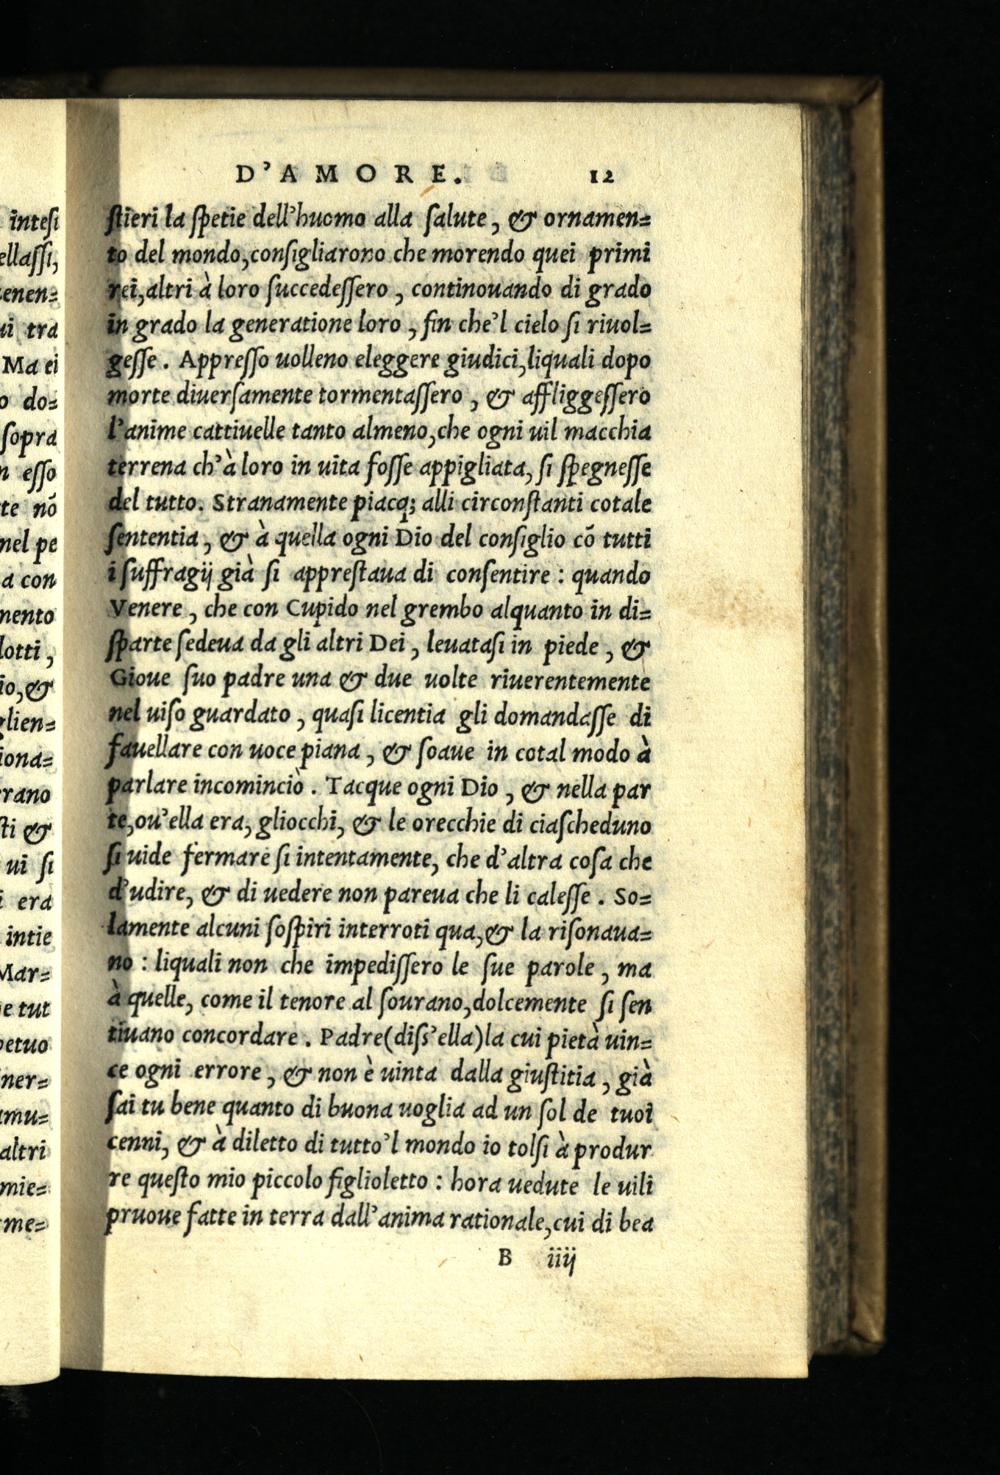 D'AMORE. 12
stieri la spetie dell'huomo alla salute, & ornamen=
to del mondo, consigliarono che morendo quei primi
rei, altri à loro succedessero, continouando di grado
in grado la generatione loro, fin che'l cielo si riuol=
gesse. Appresso uolleno eleggere giudici, liquali dopo
morte diuersamente tormentassero, & affliggessero
l'anime cattiuelle tanto almeno, che ogni uil macchia
terrena ch'à loro in uita fosse appigliata, si spegnesse
del tutto. Stranamente piacq; alli circonstanti cotale
sententia, & à quella ogni Dio del consiglio cõ tutti
i suffragij già si apprestaua di consentire: quando
Venere, che con Cupido nel grembo alquanto in di=
sparte sedeua da gli altri Dei, leuatasi in piede, &
Gioue suo padre una & due uolte riuerentemente
nel uiso guardato, quasi licentia gli domandasse di
fauellare con uoce piana, & soaue in cotal modo à
parlare incominciò. Tacque ogni Dio, & nella par
te, ou'ella era, gliocchi, & le orecchie di ciascheduno
si uide fermare si intentamente, che d'altra cosa che
d'udire, & di uedere non pareua che li calesse. So=
lamente alcuni sospiri interroti qua, & la risonaua=
no: liquali non che impedissero le sue parole, ma
à quelle, come il tenore al sourano, dolcemente si sen
tiuano concordare. Padre (diss'ella) la cui pietà uin=
ce ogni errore, & non è uinta dalla giustitia, già
sai tu bene quanto di buona uoglia ad un sol de tuoi
cenni, & à diletto di tutto'l mondo io tolsi à produr
re questo mio piccolo figlioletto: hora uedute le uili
pruoue fatte in terra dall'anima rationale, cui di bea
B iiij
intesi
ellassi,
enen=
ui tra
Ma ei
o do=
sopra
n esso
te nõ
nel pe
a con
mento
lotti,
io, &
glien=
iona=
rano
ti &
ui si
i era
intie
Mar=
e tut
petuo
ner=
mu=
altri
mie=
me=